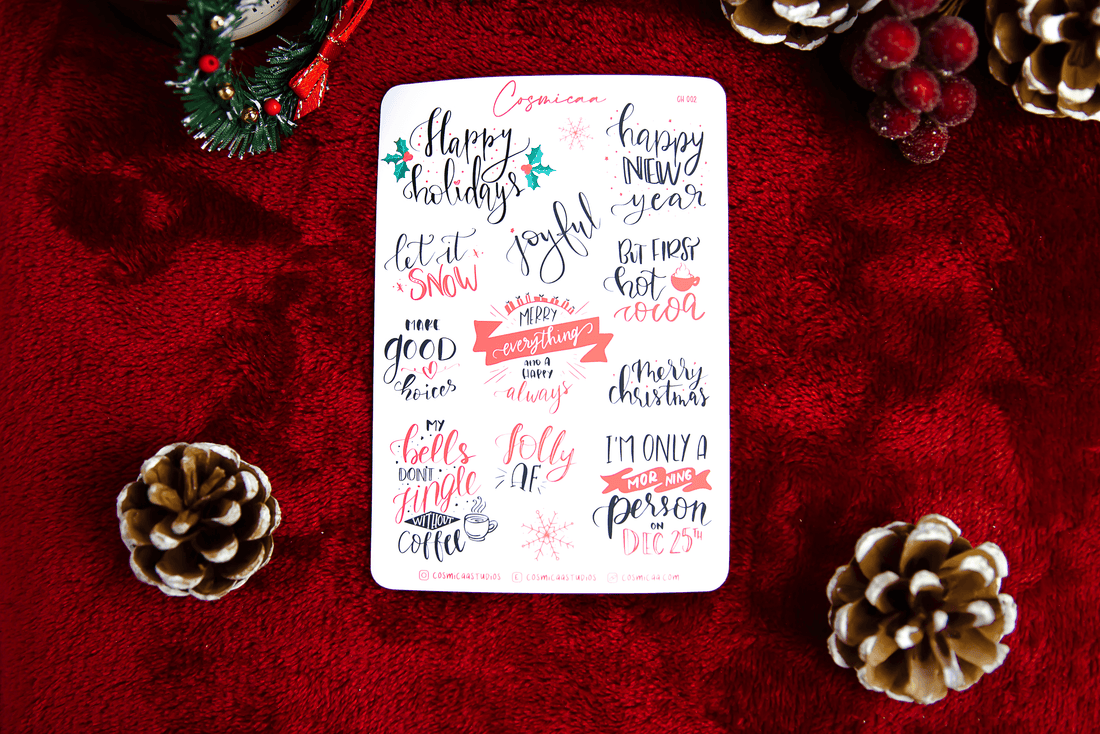 Cosmicaa
CH 002
Happy
holidays
happy
NEW
year
joyful
let it
SNOW
BUT FIRST
hot
cocoa
MERRY
everything
AND A
HAPPY
always
MAKE
GOOD
choices
merry
christmas
MY
bells
DON'T
jingle
WITHOUT
coffee
Jolly
AF
I'M ONLY A
MORNING
person
ON
DEC 25TH
COSMICAASTUDIOS
COSMICAASTUDIOS
COSMICAA.COM